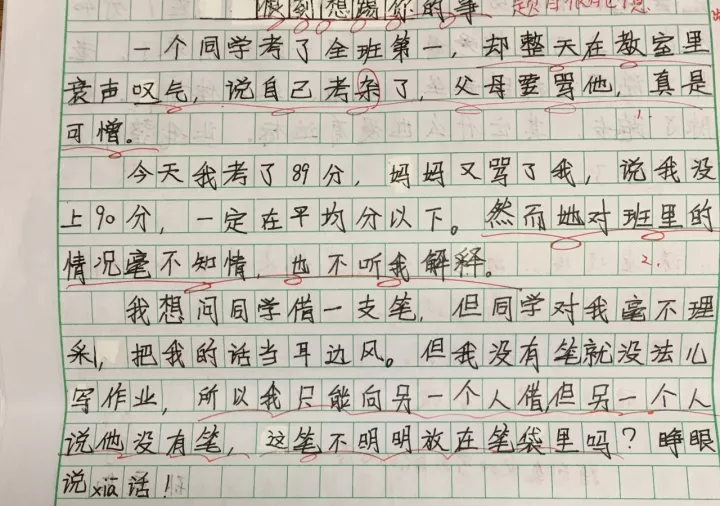 做刻想踢你的事
一个同学考了全班第一，却整天在教室里
哀声叹气，说自己考杂了，父母要骂他，真是
可憎。
今天我考了89分，妈妈又骂了我，说我没
上90分，一定在平均分以下。然而她对班里的
情况毫不知情，也不听我解释。
我想问同学借一支笔，但同学对我毫不理
采，把我的话当耳边风。但我没有笔就没法儿
写作业，所以我只能向另一个人借,但另一个人
说他没有笔，这笔不明明放在笔袋里吗？睁眼
说xia话！